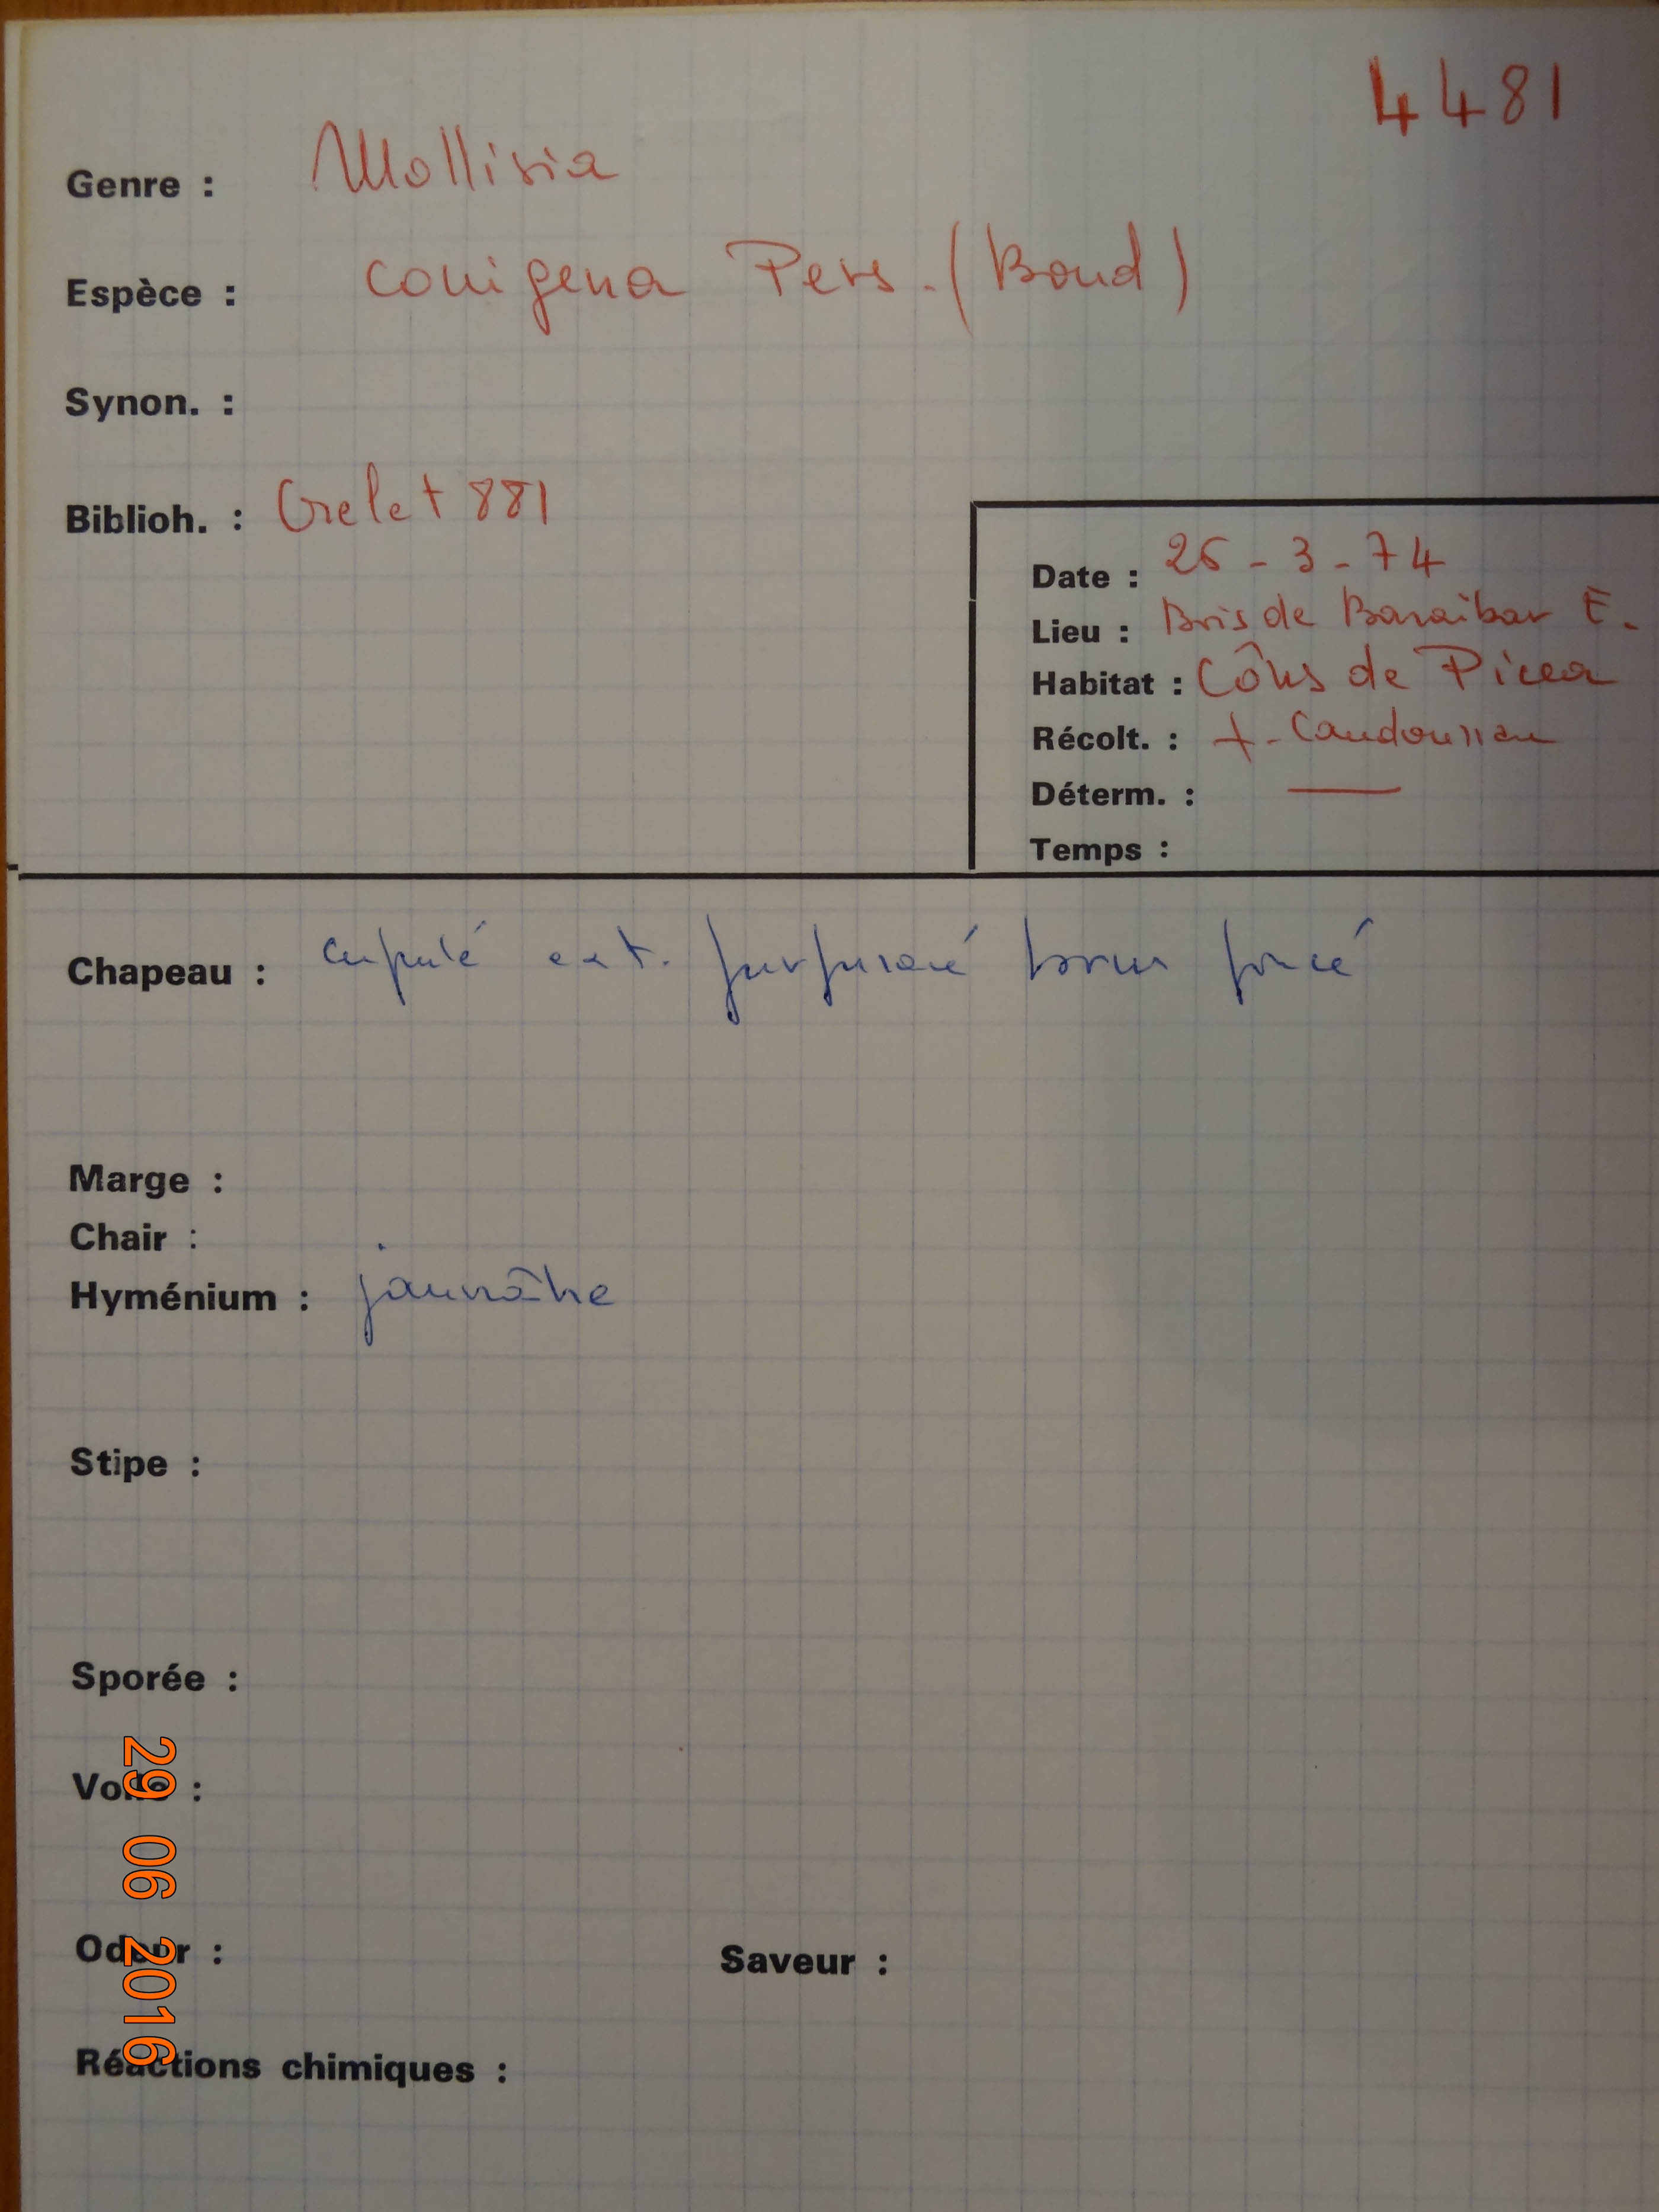 4481
Genre : Mollisia
Espèce : conigena Pers. (Boud)
Synon. :
Biblioh. : Grelet 881
Date : 26 - 3 - 74
Lieu : Bois de Baraibar E.
Habitat : Cônes de Picea
Récolt. :
Déterm. : —
Temps :
Chapeau : cupulé ext. furfuracé brun foncé
Marge :
Chair :
Hyménium : jaunâtre
Stipe :
Sporée :
Voile :
Odeur : Saveur :
Réactions chimiques :
29 06 2016